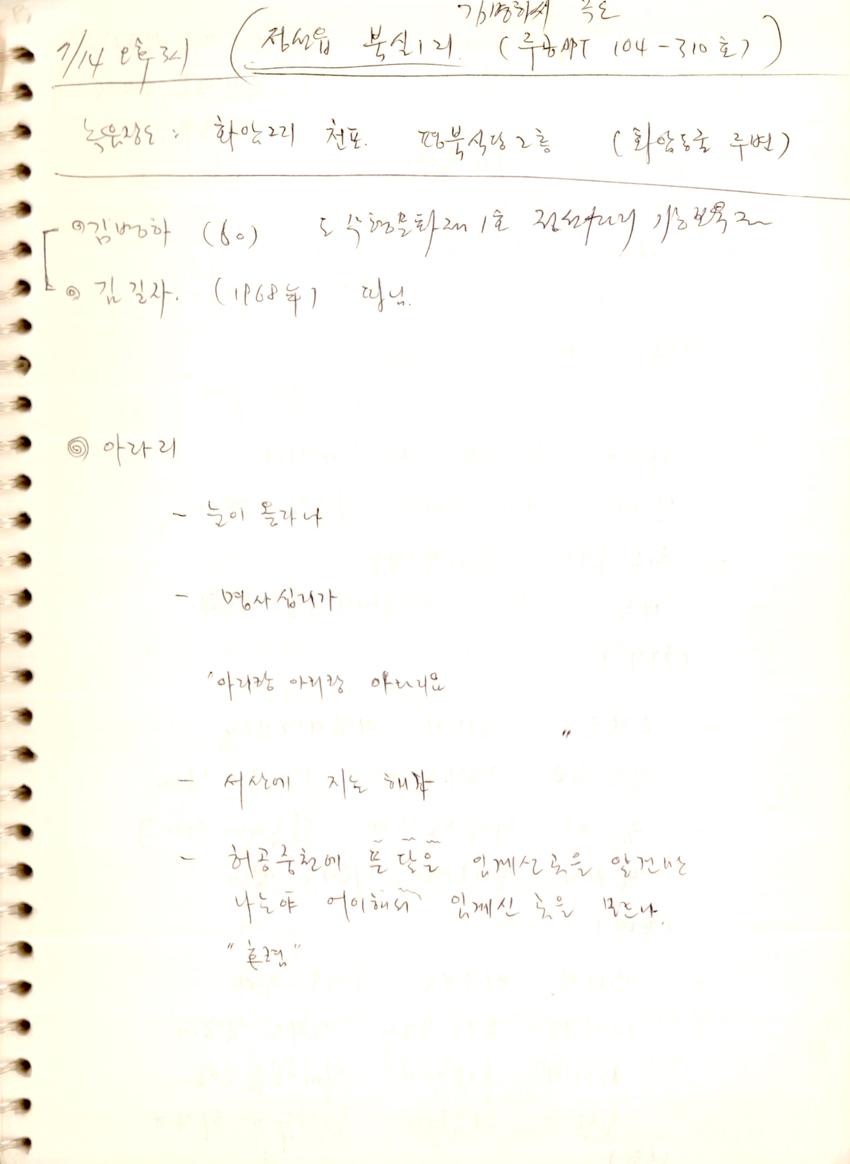 김병하씨 주소
7/14 오후 3시 (정선읍 북실1리 (주공APT 104-310호))
녹음장소 : 화암2리 천포. 평북식당 2층 (화암동굴 주변)
◎김병하 (60) 도 무형문화재 1호 정선아리랑 기능보유자
◎ 김길자. (1968年) 따님.
◎ 아라리
- 눈이 올라나
- 명사십리가
"아리랑 아리랑 아라리요
"
- 서산에 지는 해가
- 허공중천에 뜬 달은 임계신 곳을 알건만
나는야 어이해서 임계신 곳을 모르나.
"후렴"